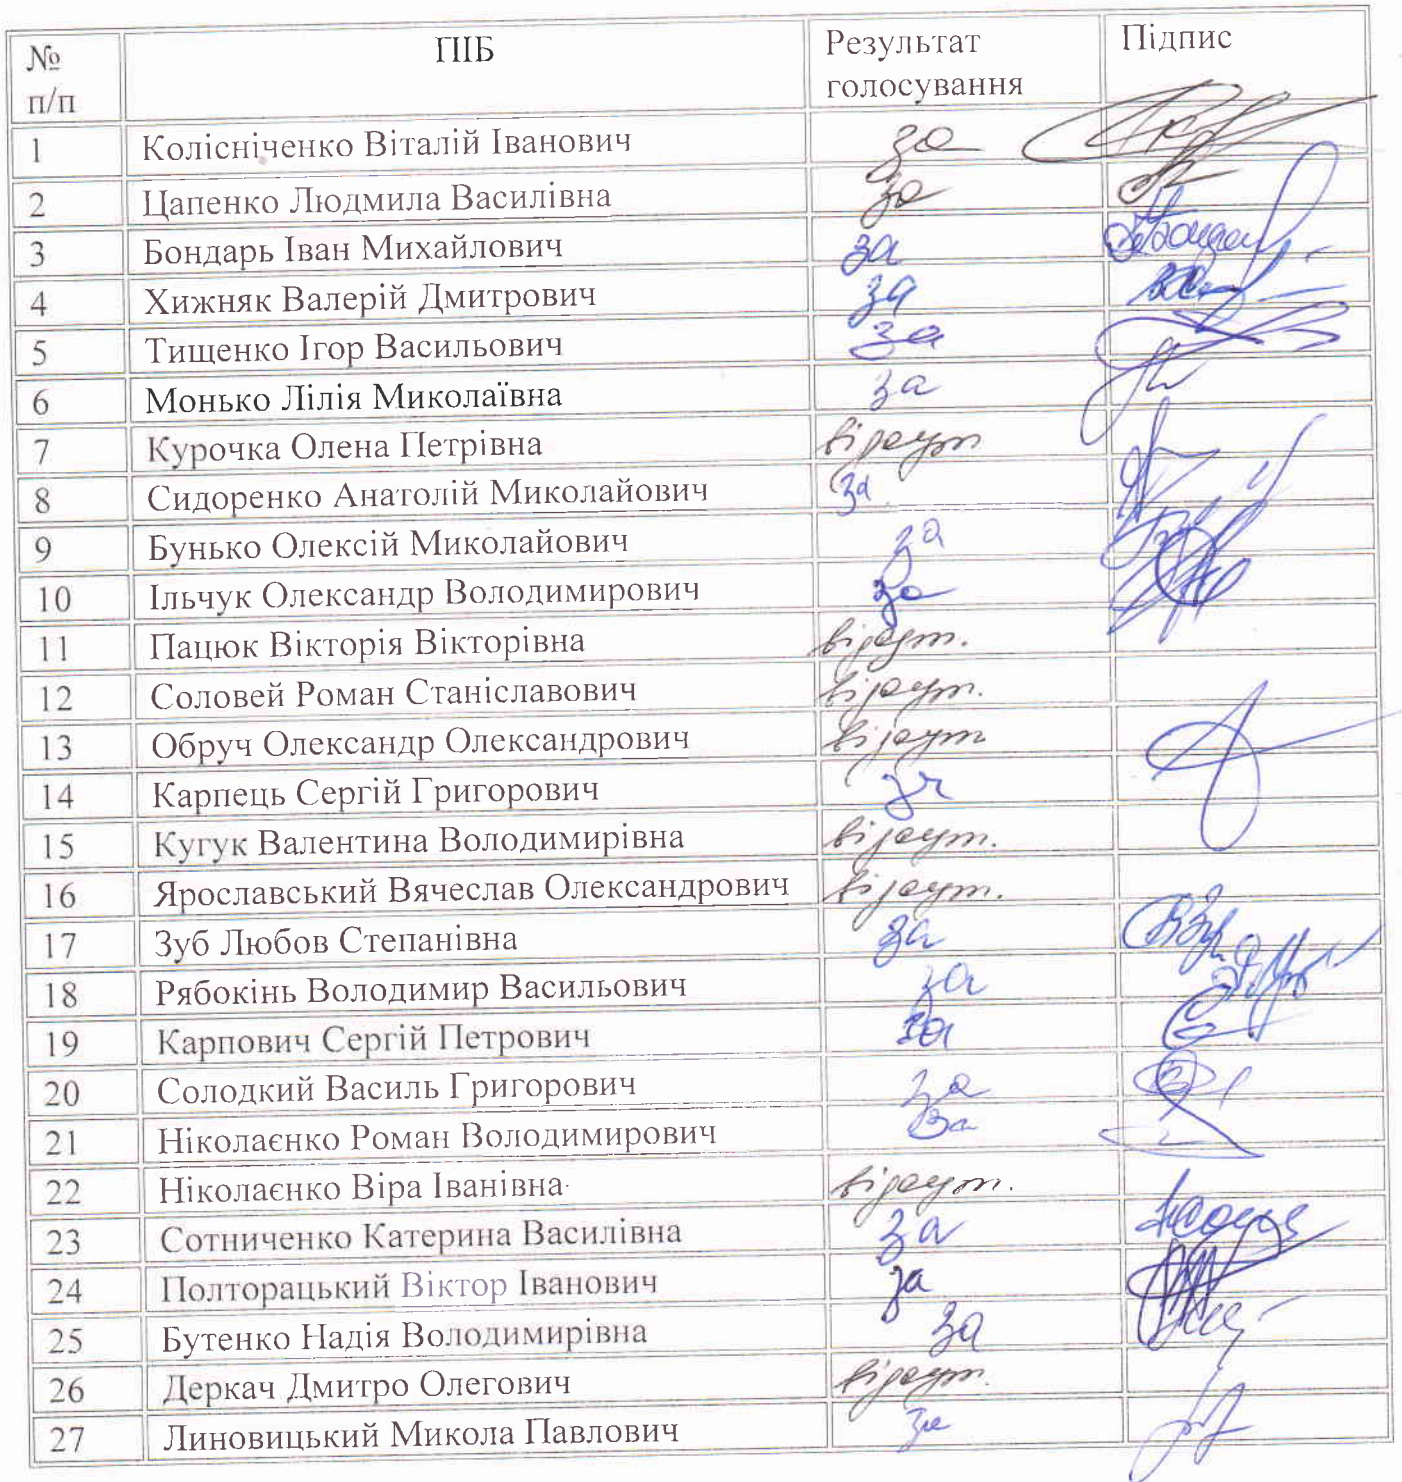 № п/п ПІБ Результат голосування Підпис
1 Колісніченко Віталій Іванович за
2 Цапенко Людмила Василівна за
3 Бондарь Іван Михайлович за
4 Хижняк Валерій Дмитрович за
5 Тищенко Ігор Васильович за
6 Монько Лілія Миколаївна за
7 Курочка Олена Петрівна відсут
8 Сидоренко Анатолій Миколайович за
9 Бунько Олексій Миколайович за
10 Ільчук Олександр Володимирович за
11 Пацюк Вікторія Вікторівна відсут.
12 Соловей Роман Станіславович відсут.
13 Обруч Олександр Олександрович відсут
14 Карпець Сергій Григорович за
15 Кугук Валентина Володимирівна відсут.
16 Ярославський Вячеслав Олександрович відсут.
17 Зуб Любов Степанівна за
18 Рябокінь Володимир Васильович за
19 Карпович Сергій Петрович за
20 Солодкий Василь Григорович за
21 Ніколаєнко Роман Володимирович за
22 Ніколаєнко Віра Іванівна відсут.
23 Сотниченко Катерина Василівна за
24 Полторацький Віктор Іванович за
25 Бутенко Надія Володимирівна за
26 Деркач Дмитро Олегович відсут.
27 Линовицький Микола Павлович за